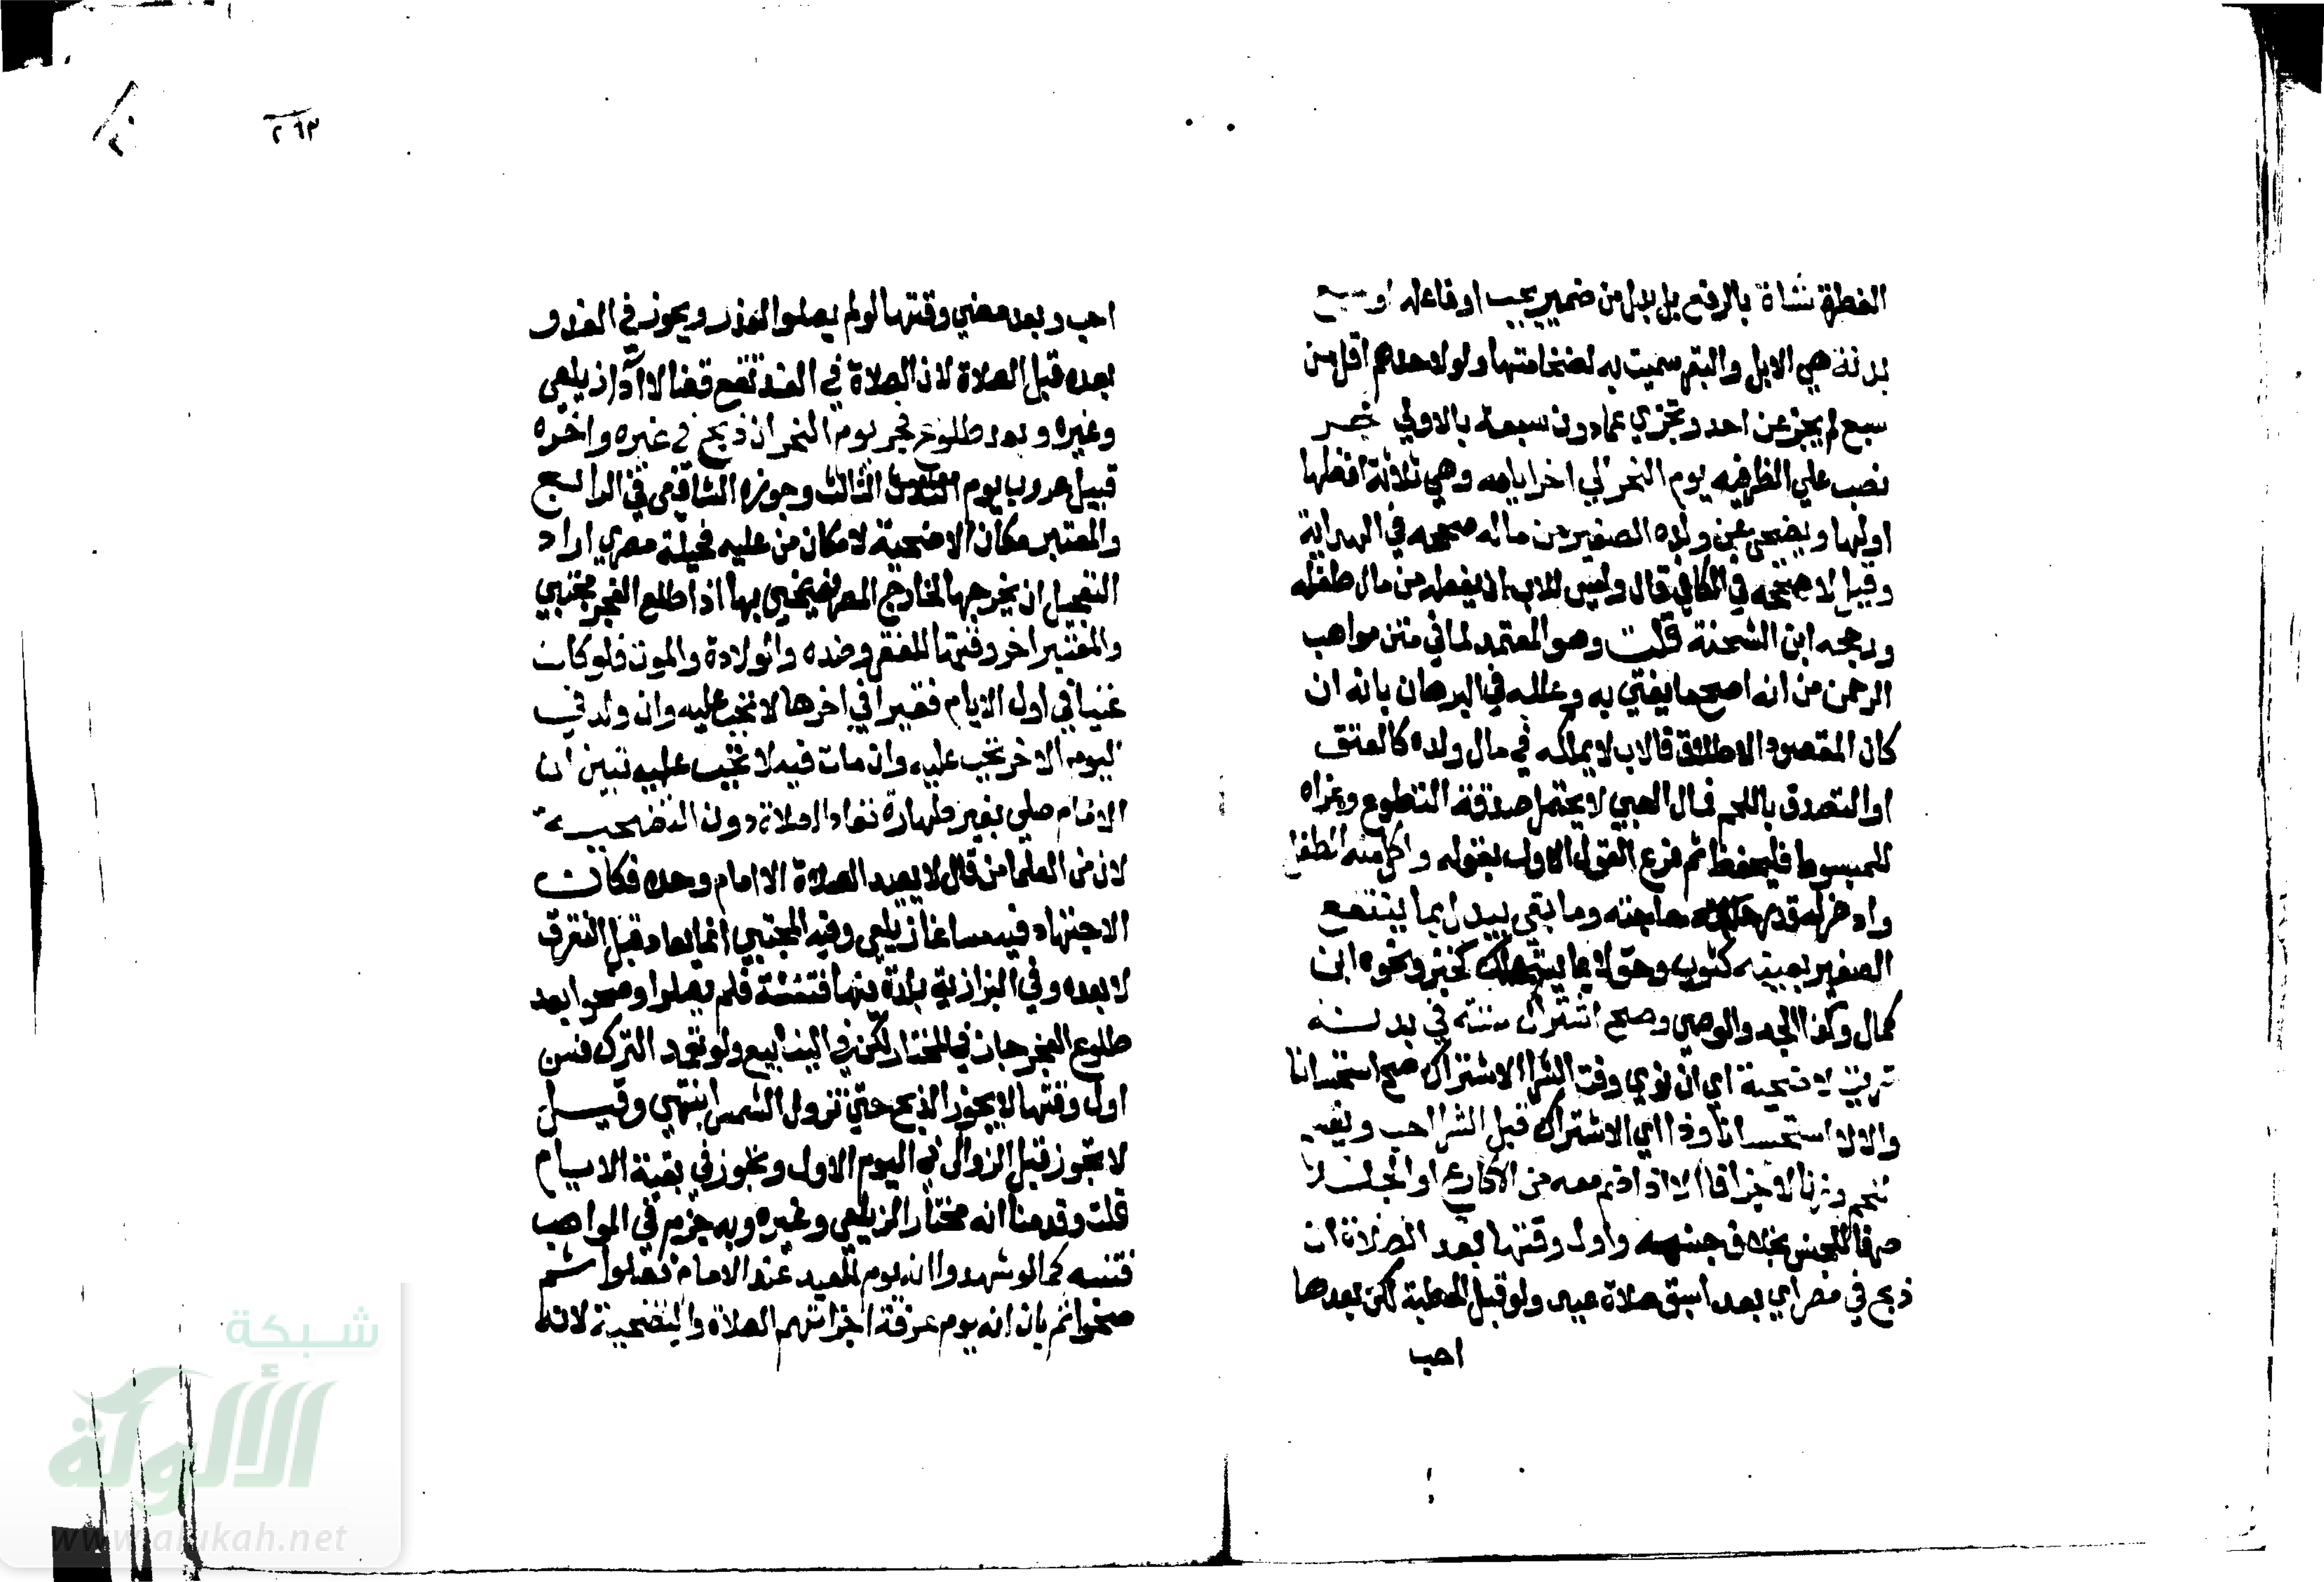 الفطرة شاة بالرفع بدل من ضمير يجب او فاعله او سبع
بدنة هي الابل والبقر سميت به لضخامتها ولو لاحدهم اقل من
سبع لم يجز عن احد وتجزي عما دون سبعة بالاولي فجر
نصب علي الظرفيه يوم النحر الي اخر ايامه وهي ثلاثة افضلها
اولها ويضحي عن ولده الصغير من ماله صححه في الهداية
وقيل لا صححه في الكافي قال وليس للاب ان يفعله من مال طفله
ورجحه ابن الشحنة قلت وهو المعتمد لما في متن مواهب
الرحمن من انه اصح ما يفتي به وعلله في البرهان بانه ان
كان المقصود الاطلاق فالاب لا يملكه في مال ولده كالعتق
او التصدق باللحم فمال الصبي لا يحتمل صدقة التطوع وعزاه
للمبسوط فليحفظ ثم فرع القول الاول بقوله واكل منه الطفل
وادخر له قدر حاجته وما بقي يبدل بما ينتفع
الصغير بعينه كثوب وخف لا بما يستهلك كخبز ونحوه ابن
كمال وكذا الجد والوصي وصح اشتراك ستة في بدنة
شريت لاضحية اي ان نوي وقت الشرا الاشتراك صح استحسانا
والا لا استحسانا وذا اي الاشتراك قبل الشرا احب ويقسم
لحم وزنا لا جزافا الا اذا ضم معه من الاكارع او الجلد لا
صرفا للجنس بخلاف جنسه واول وقتها بعد الصلاة ان
ذبح في مصر اي بعد اسبق صلاة عيد ولو قبل الخطبة لكن بعدها
احب
٢٩٣
احب وبعد مضي وقتها لو لم يصلوا لعذر ويجوز في الغد و
بعده قبل الصلاة لان الصلاة في الغد تقع قضا لا ادا زيلعي
وغيره وبعد طلوع فجر يوم النحر ان ذبح في غيره واخره
قبيل غروب يوم الثالث وجوزه الشافعي في الرابع
والمعتبر مكان الاضحية لا مكان من عليه فحيلة مصري اراد
التعجيل ان يخرجها لخارج المصر فيضحي بها اذا طلع الفجر مجتبي
والمعتبر اخر وقتها للفقير وضده والولادة والموت فلو كان
غنيا في اول الايام فقيرا في اخرها لا تجب عليه وان ولد في
اليوم الاخر تجب عليه وان مات فيه لا تجب عليه تبين ان
الامام صلي بغير طهارة تعاد الصلاة دون التضحية
لان من العلما من قال لا يعيد الصلاة الا الامام وحده فكان
الاجتهاد فيه مساغا زيلعي وفي المجتبي انما يعاد قبل التفرق
لا بعده وفي البزازية بلدة بها فتنة فلم يصلوا وضحوا بعد
طلوع الفجر جاز في المختار لكن في الينابيع ولو تعمد الترك فسن
اول وقتها لا يجوز الذبح حتي تزول الشمس انتهي وقيل
لا تجوز قبل الزوال في اليوم الاول وتجوز في بقية الايام
قلت وقدمنا انه مختار الزيلعي وغيره وبه جزم في المواهب
فتنبه كما لو شهدوا انه يوم العيد عند الامام فصلوا ثم
ضحوا ثم بان انه يوم عرفة اجزاتهم الصلاة والتضحية لانه
شبكة
الألوكة
www.alukah.net